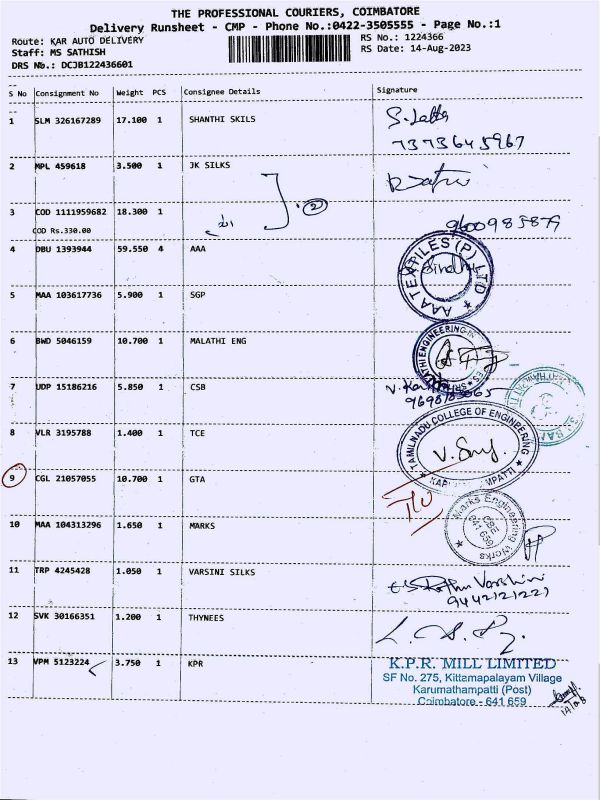 THE PROFESSIONAL COURIERS, COIMBATORE
Delivery Runsheet - CMP - Phone No.:0422-3505555 - Page No.:1
Route: KAR AUTO DELIVERY
Staff: MS SATHISH
DRS No.: DCJB122436601
RS No.: 1224366
RS Date: 14-Aug-2023
S No Consignment No Weight PCS Consignee Details Signature
1 SLM 326167289 17.100 1 SHANTHI SKILS
7373645967
2 MPL 459618 3.500 1 JK SILKS
2
3 COD 1111959682 18.300 1
COD Rs.330.00
9600985879
4 DBU 1393944 59.550 4 AAA
AAA TEXTILES (P) LTD
5 MAA 103617736 5.900 1 SGP
6 BWD 5046159 10.700 1 MALATHI ENG
7 UDP 15186216 5.850 1 CSB
8 VLR 3195788 1.400 1 TCE
TAMILNADU COLLEGE OF ENGINEERING
9 CGL 21057055 10.700 1 GTA
10 MAA 104313296 1.650 1 MARKS
Marks Engineering Works
CBE
641 659
11 TRP 4245428 1.050 1 VARSINI SILKS
9442121221
12 SVK 30166351 1.200 1 THYNEES
13 VPM 5123224 3.750 1 KPR
K.P.R. MILL LIMITED
SF No. 275, Kittamapalayam Village
Karumathampatti (Post)
Coimbatore - 641 659